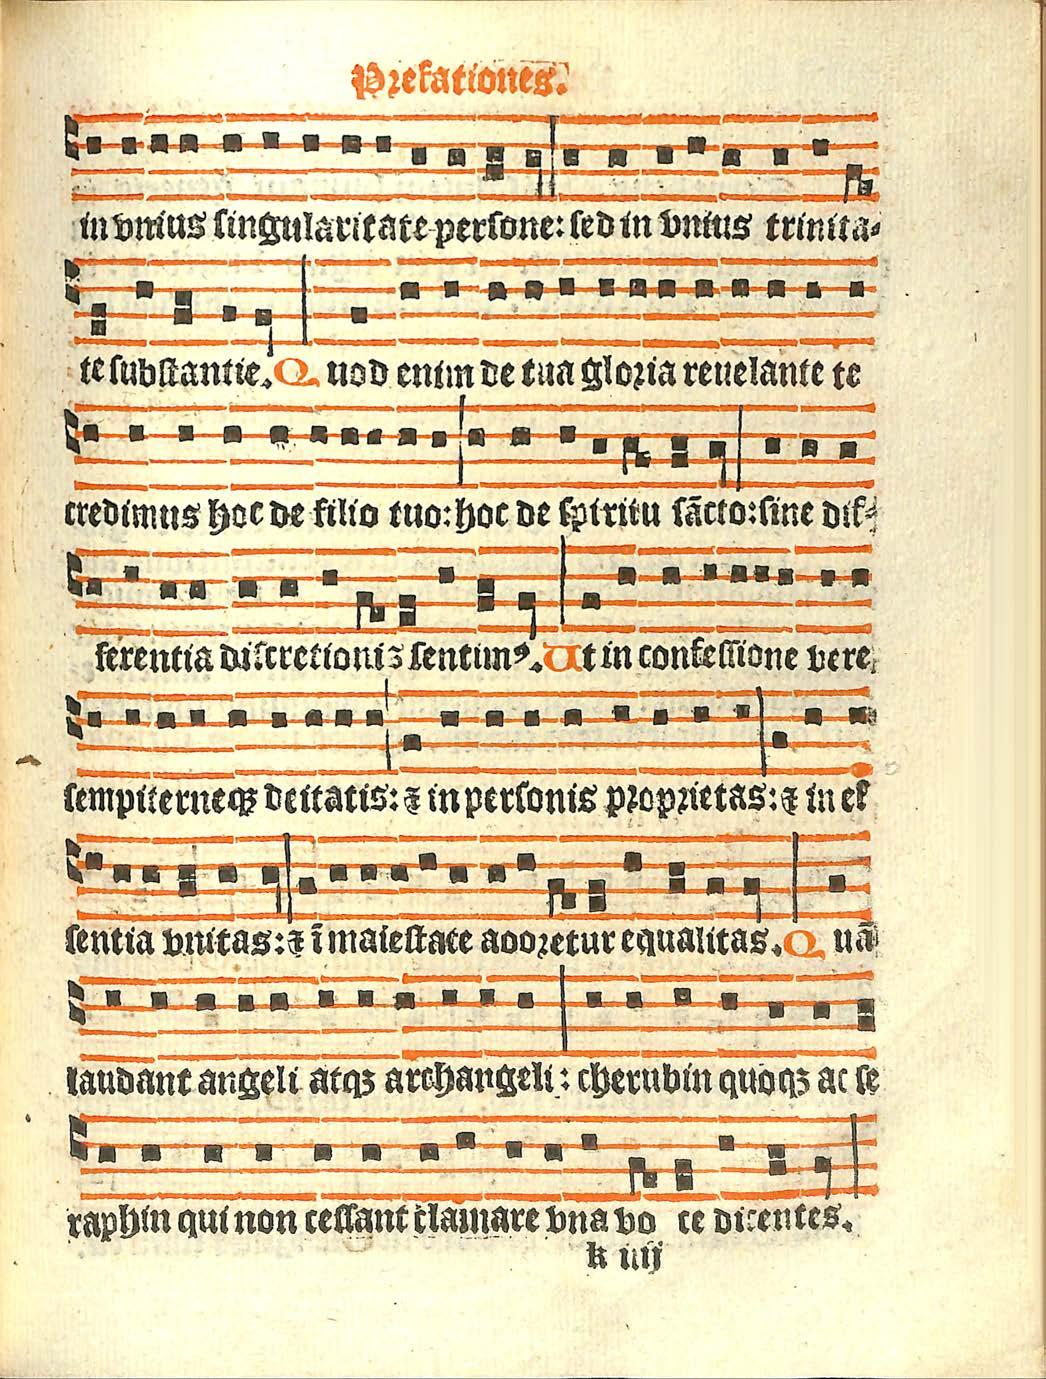 Prefationes.
in vnius singularitate persone: sed in vnius trinita⸗
te substantie. Quod enim de tua gloria reuelante te
credimus hoc de filio tuo: hoc de spiritu sācto: sine dif⸗
ferentia discretionis sentimꝰ. Ut in confessione vere
sempiterneqꝫ deitatis: ⁊ in personis proprietas: ⁊ in es
sentia vnitas: ⁊ ī maiestate adoretur equalitas. Quā
laudant angeli atqꝫ archangeli: cherubin quoqꝫ ac se
raphin qui non cessant clamare vna vo ce dicentes.
k iiij